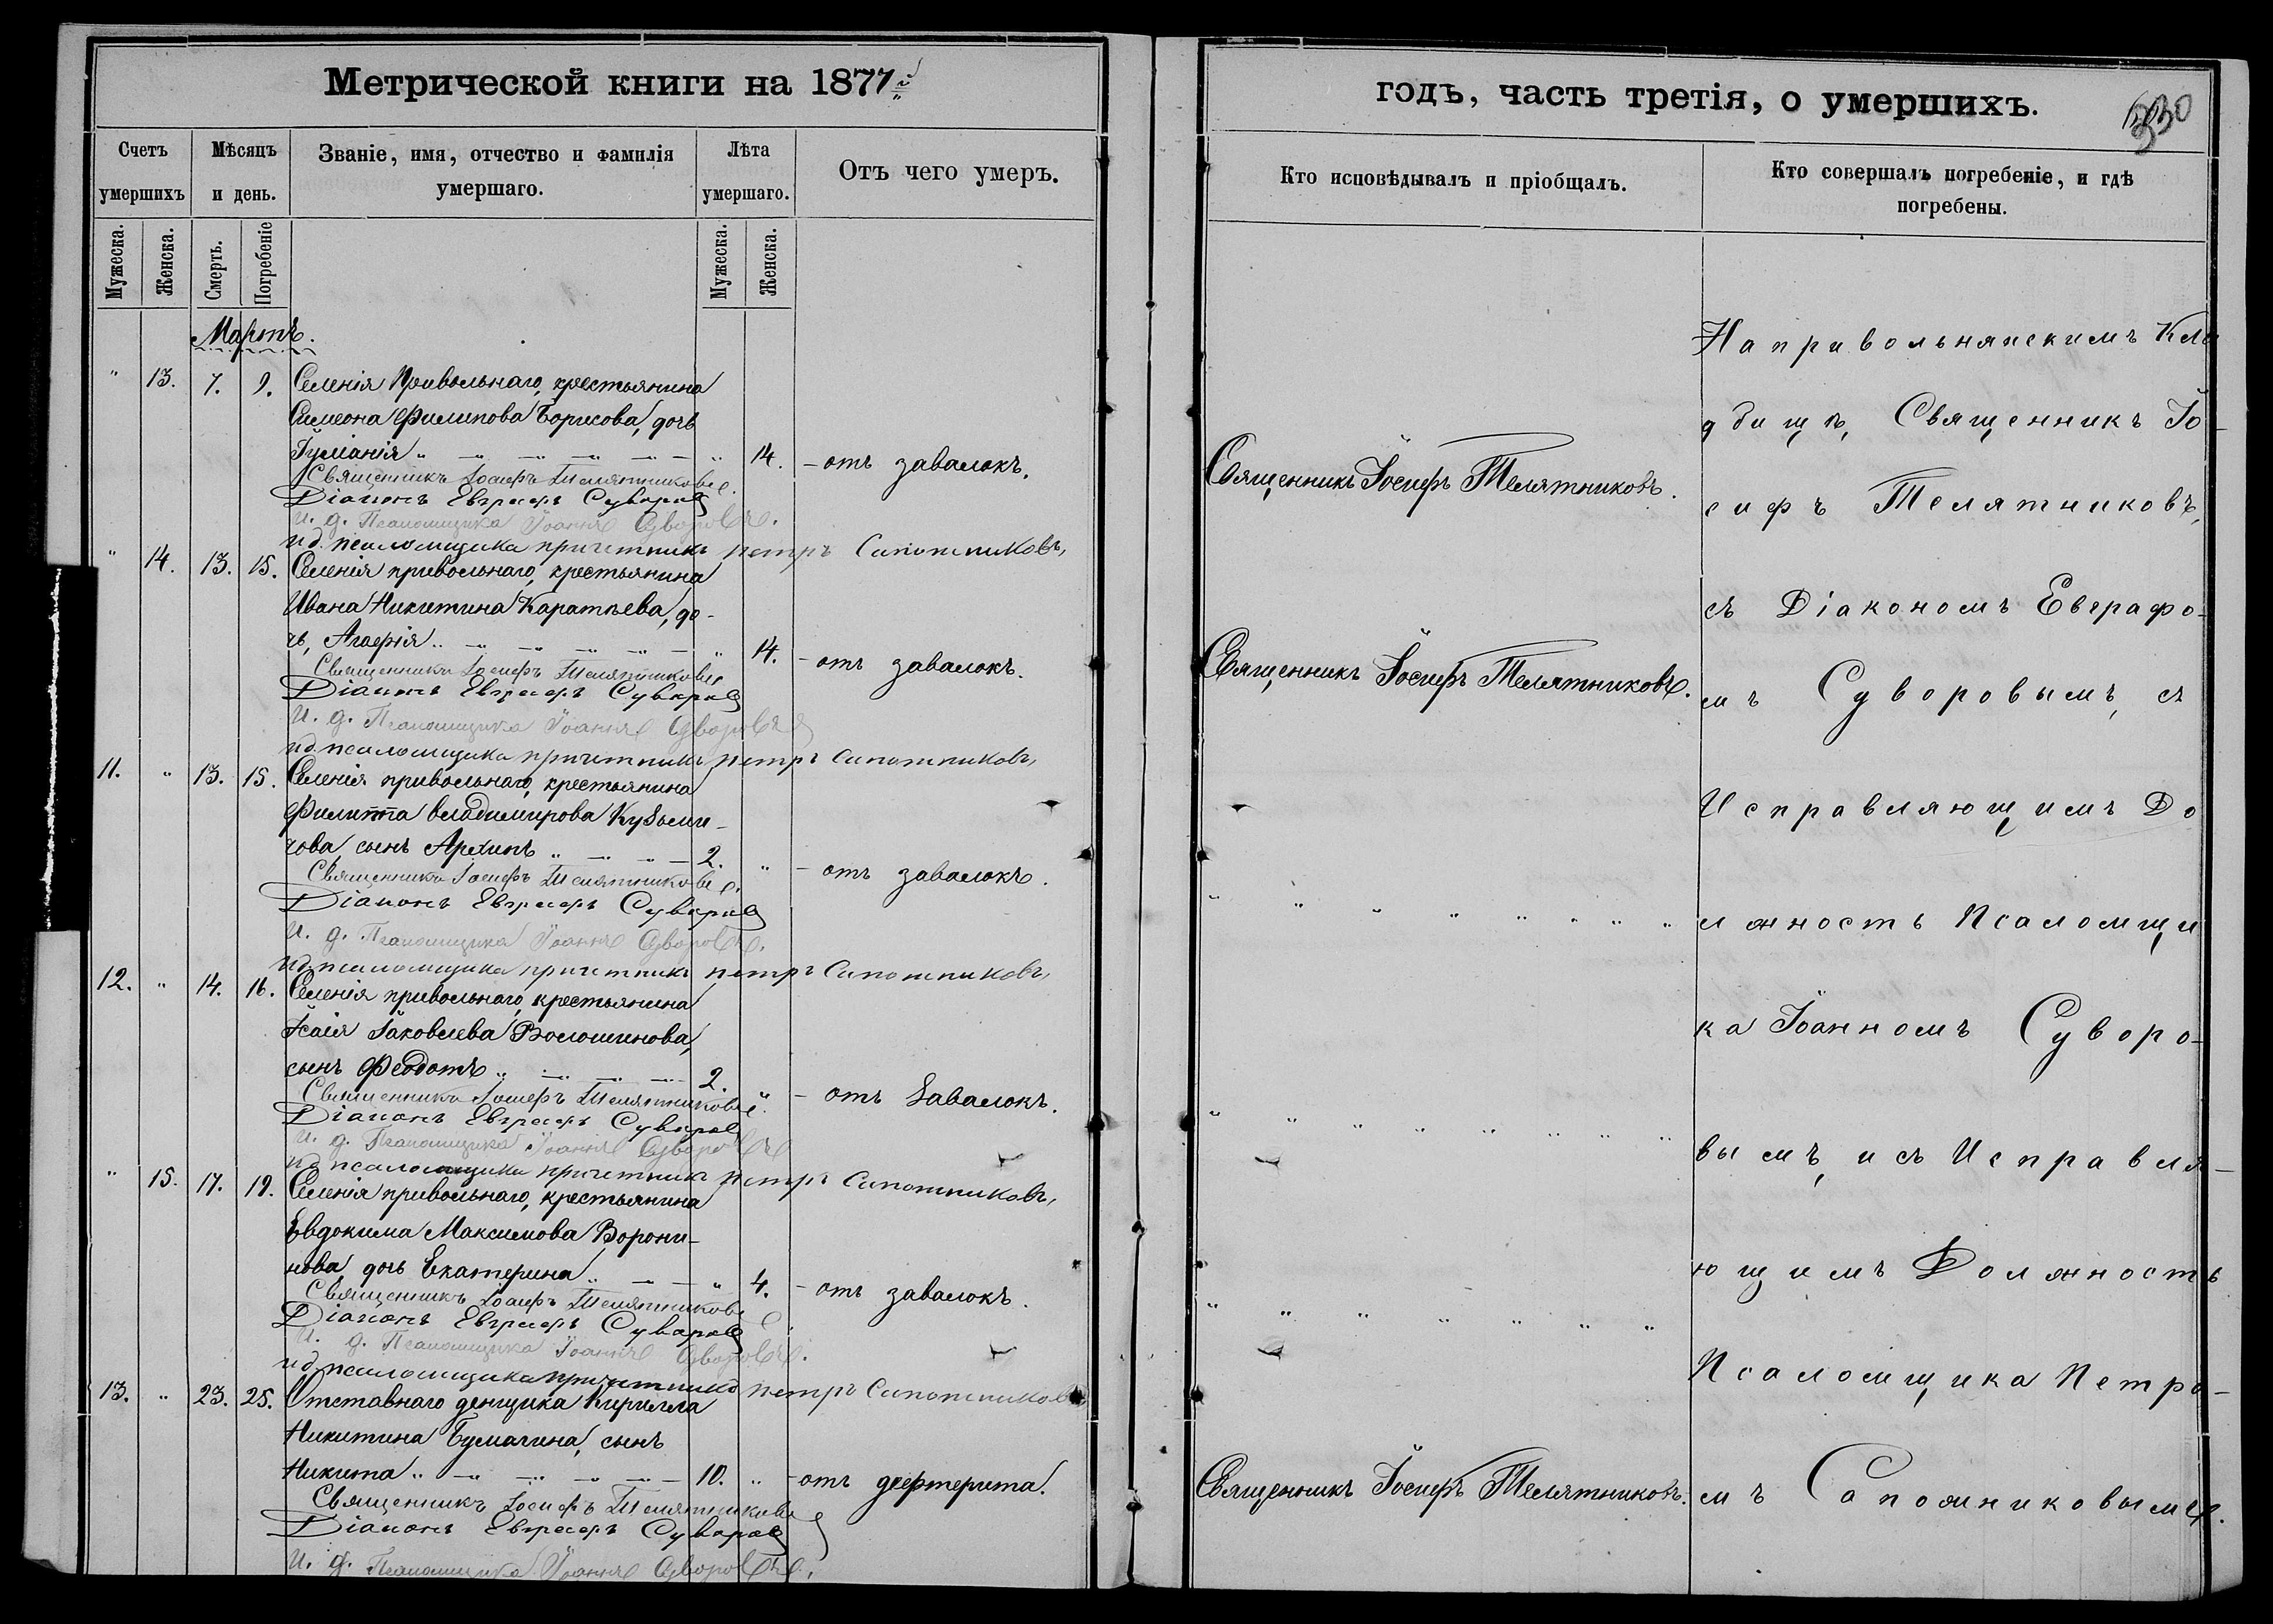 Метрической книги на 1877й
Счетъ умершихъ
Мѣсяцъ и день.
Званіе, имя, отчество и фамилія умершаго.
Лѣта умершаго.
Отъ чего умеръ.
Мужеска.
Женска.
Смерть.
Погребеніе
Мужеска.
Женска.
Мартъ.
" 13. 7. 9. Селенія Привольнаго, крестьянина
Симеона Филипова Борисова, дочь
Іуліанія " 14. – отъ завалокъ.
Священникъ Іосифъ Телятниковъ.
Діаконъ Евграфъ Суворовъ
И. д. Псаломщика Іоаннъ Суворовъ.
ид псаломщика причетникъ петръ Сапожниковъ,
" 14. 13. 15. Селенія привольнаго, крестьянина
Ивана Никитина Каратѣева, до-
чь, Агафія " 14. – отъ завалокъ.
Священникъ Іосифъ Телятниковъ
Діаконъ Евграфъ Суворовъ
И. д. Псаломщика Іоаннъ Суворовъ
ид псаломщика причетникъ петръ Сапожниковъ,
11. " 13. 15. Селенія привольнаго, крестьянина
Филиппа владимирова Кузьми-
чова сынъ Архипъ 2. " – отъ завалокъ.
Священникъ Іосифъ Телятниковъ.
Діаконъ Евграфъ Суворовъ
И. д. Псаломщика Іоаннъ Суворовъ.
ид псаломщика причетникъ петръ Сапожниковъ,
12. " 14. 16. Селенія привольнаго, крестьянина
Ісаія Іаковлева Волошинова,
сынъ Феодотъ 2. " – отъ завалокъ.
Священникъ Іосифъ Телятниковъ.
Діаконъ Евграфъ Суворовъ
И. д. Псаломщика Іоаннъ Суворовъ
ид псаломщика причетникъ петръ Сапожниковъ,
" 15. 17. 19. Селенія привольнаго, крестьянина
Евдокима Максимова Ворони-
нова дочь Екатерина " 4. – отъ завалокъ.
Священникъ Іосифъ Телятниковъ
Діаконъ Евграфъ Суворовъ
И. д. Псаломщика Іоаннъ Суворовъ.
ид псаломщика причетникъ петръ Сапожниковъ
13. " 23. 25. Отставнаго денщика Кирилла
Никитина Бумагина, сынъ
Никита 10. " – отъ дифтерита.
Священникъ Іосифъ Телятниковъ
Діаконъ Евграфъ Суворовъ
И. д. Псаломщика Іоаннъ Суворовъ.
годъ, часть третія, о умершихъ.
Кто исповѣдывалъ и пріобщалъ.
Кто совершалъ погребеніе, и гдѣ погребены.
Священникъ Іосифъ Телятниковъ.
Священникъ Іосифъ Телятниковъ.
Священникъ Іосифъ Телятниковъ.
На привольнянскимъ Кла
дбищѣ, Священникъ Іо-
сифъ Телятниковъ,
съ Діакономъ Евграфо-
мъ Суворовымъ, съ
Исправляющимъ До
лжность Псаломщи
ка Іоанномъ Суворо-
вымъ, и съ Исправля-
ющимъ Должность
Псаломщика Петро-
мъ Сапожниковымъ.